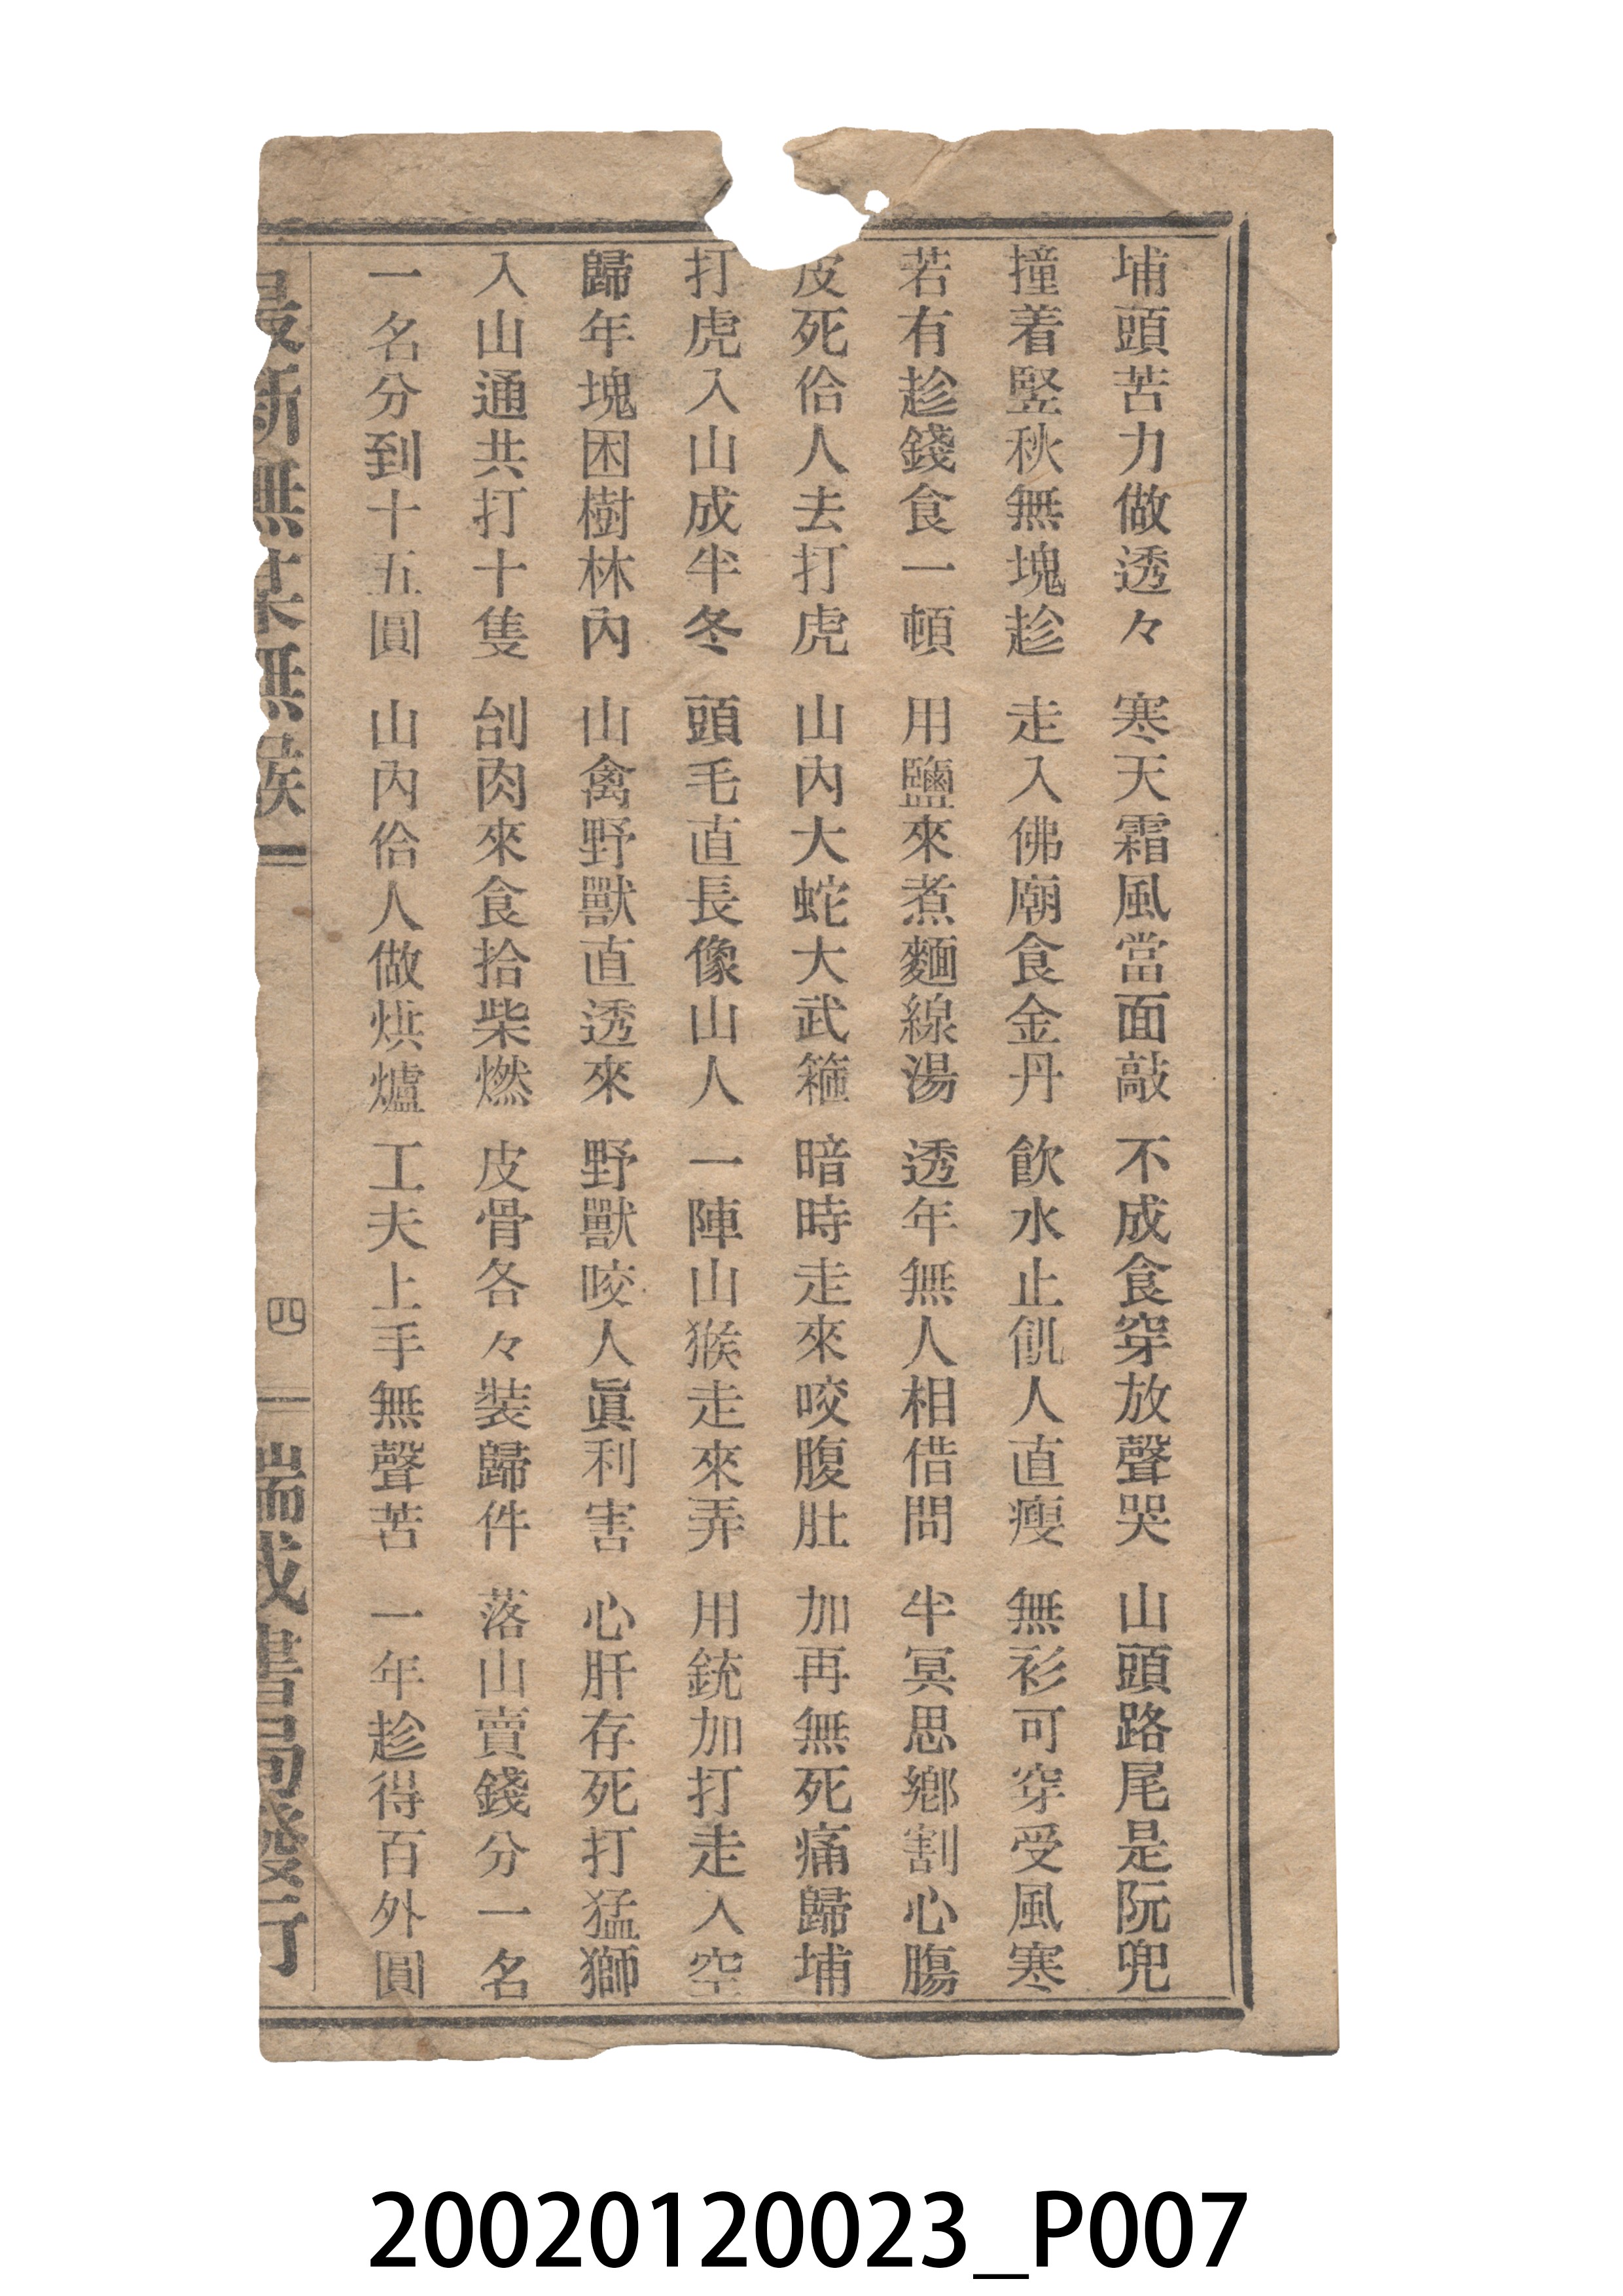 埔頭苦力做透々　寒天霜風當面敲　不成食穿放聲哭　山頭路尾是阮兜
撞着竪秋無塊趁　走入佛廟食金丹　飲水止飢人直瘦　無衫可穿受風寒
若有趁錢食一頓　用鹽來煮麵線湯　透年無人相借問　半冥思鄉割心腸
皮死佮人去打虎　山內大蛇大武箍　暗時走來咬腹肚　加再無死痛歸埔
打虎入山成半冬　頭毛直長像山人　一陣山猴走來弄　用銃加打走入空
歸年塊困樹林內　山禽野獸直透來　野獸咬人眞利害　心肝存死打猛獅
入山通共打十隻　刣肉來食拾柴燃　皮骨各々裝歸件　落山賣錢分一名
一名分到十五圓　山內佮人做烘爐　工夫上手無聲苦　一年趁得百外圓
最新無某無猴　四　瑞成書局發行
20020120023_P007